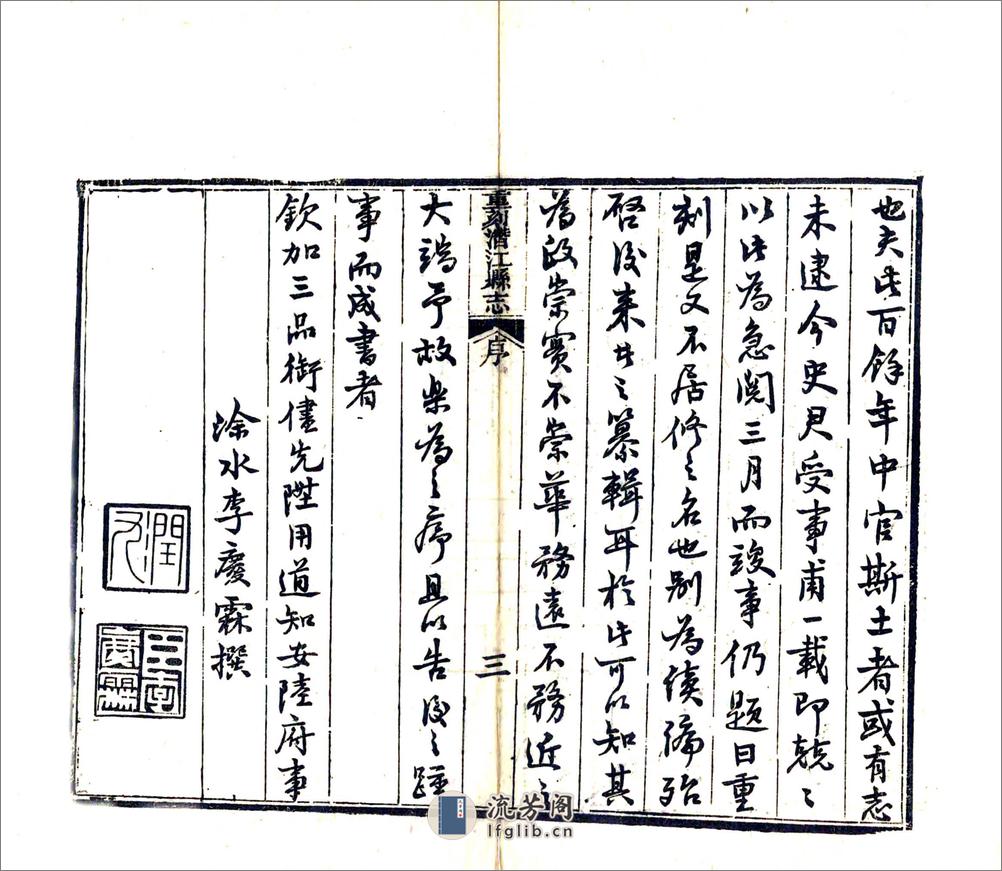 也夫此百餘年中官斯土者或有志
未逮今史君受事甫一載即兢〻
以此為急閱三月而竣事仍題曰重
刻是又不居修之名也別為續編殆
啓後来者之纂輯耳於此可以知其
為政崇實不崇華務遠不務近之
重刻潛江縣志
序
三
大端予故樂為之序且以告後之踵
事而成書者
欽加三品銜儘先陞用道知安陸府事
涂水李慶霖撰
潤九
李慶霖
流芳阁
lfglib.cn